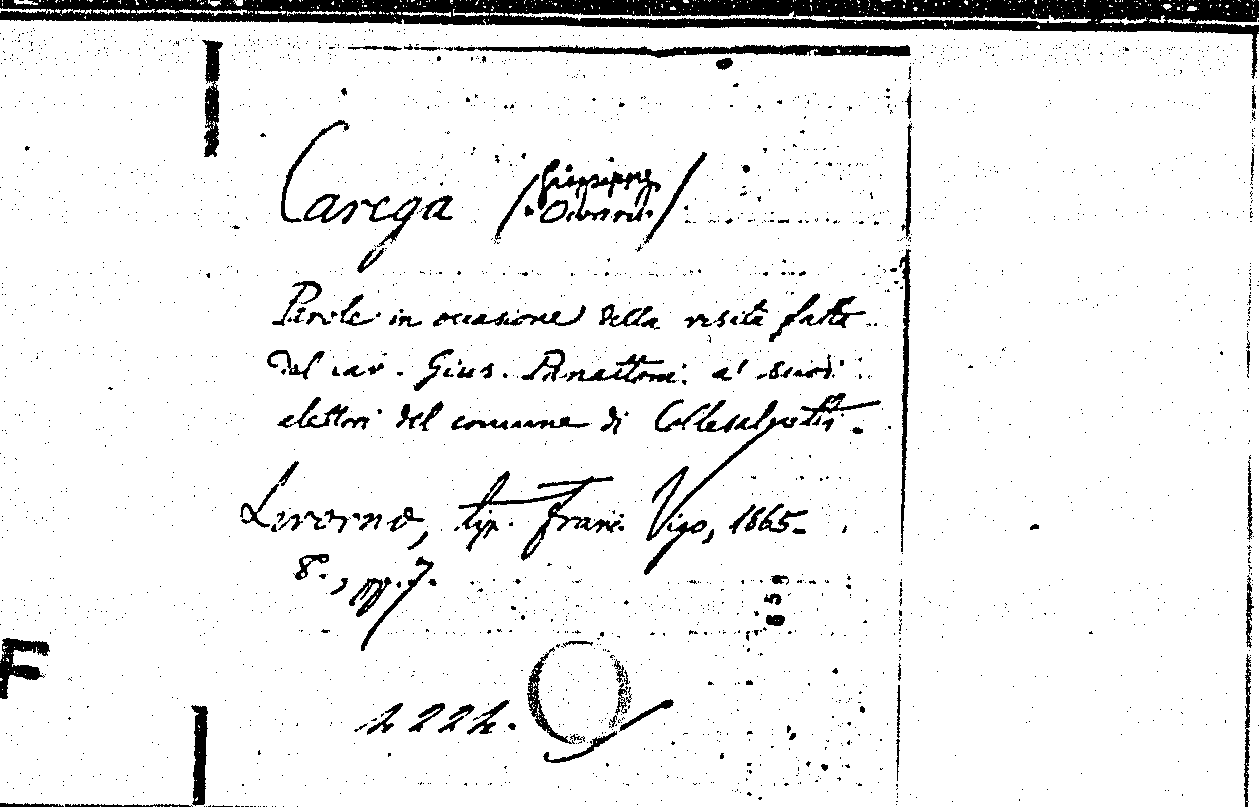 Carega (Giuseppe
Parole in occasione della visita fatta
dal cav. Gius. Panattoni a' suoi
elettori del comune di Collesalvetti.
Livorno, tip. Franc. Vigo, 1865.
8°., pp. 7.
659
F